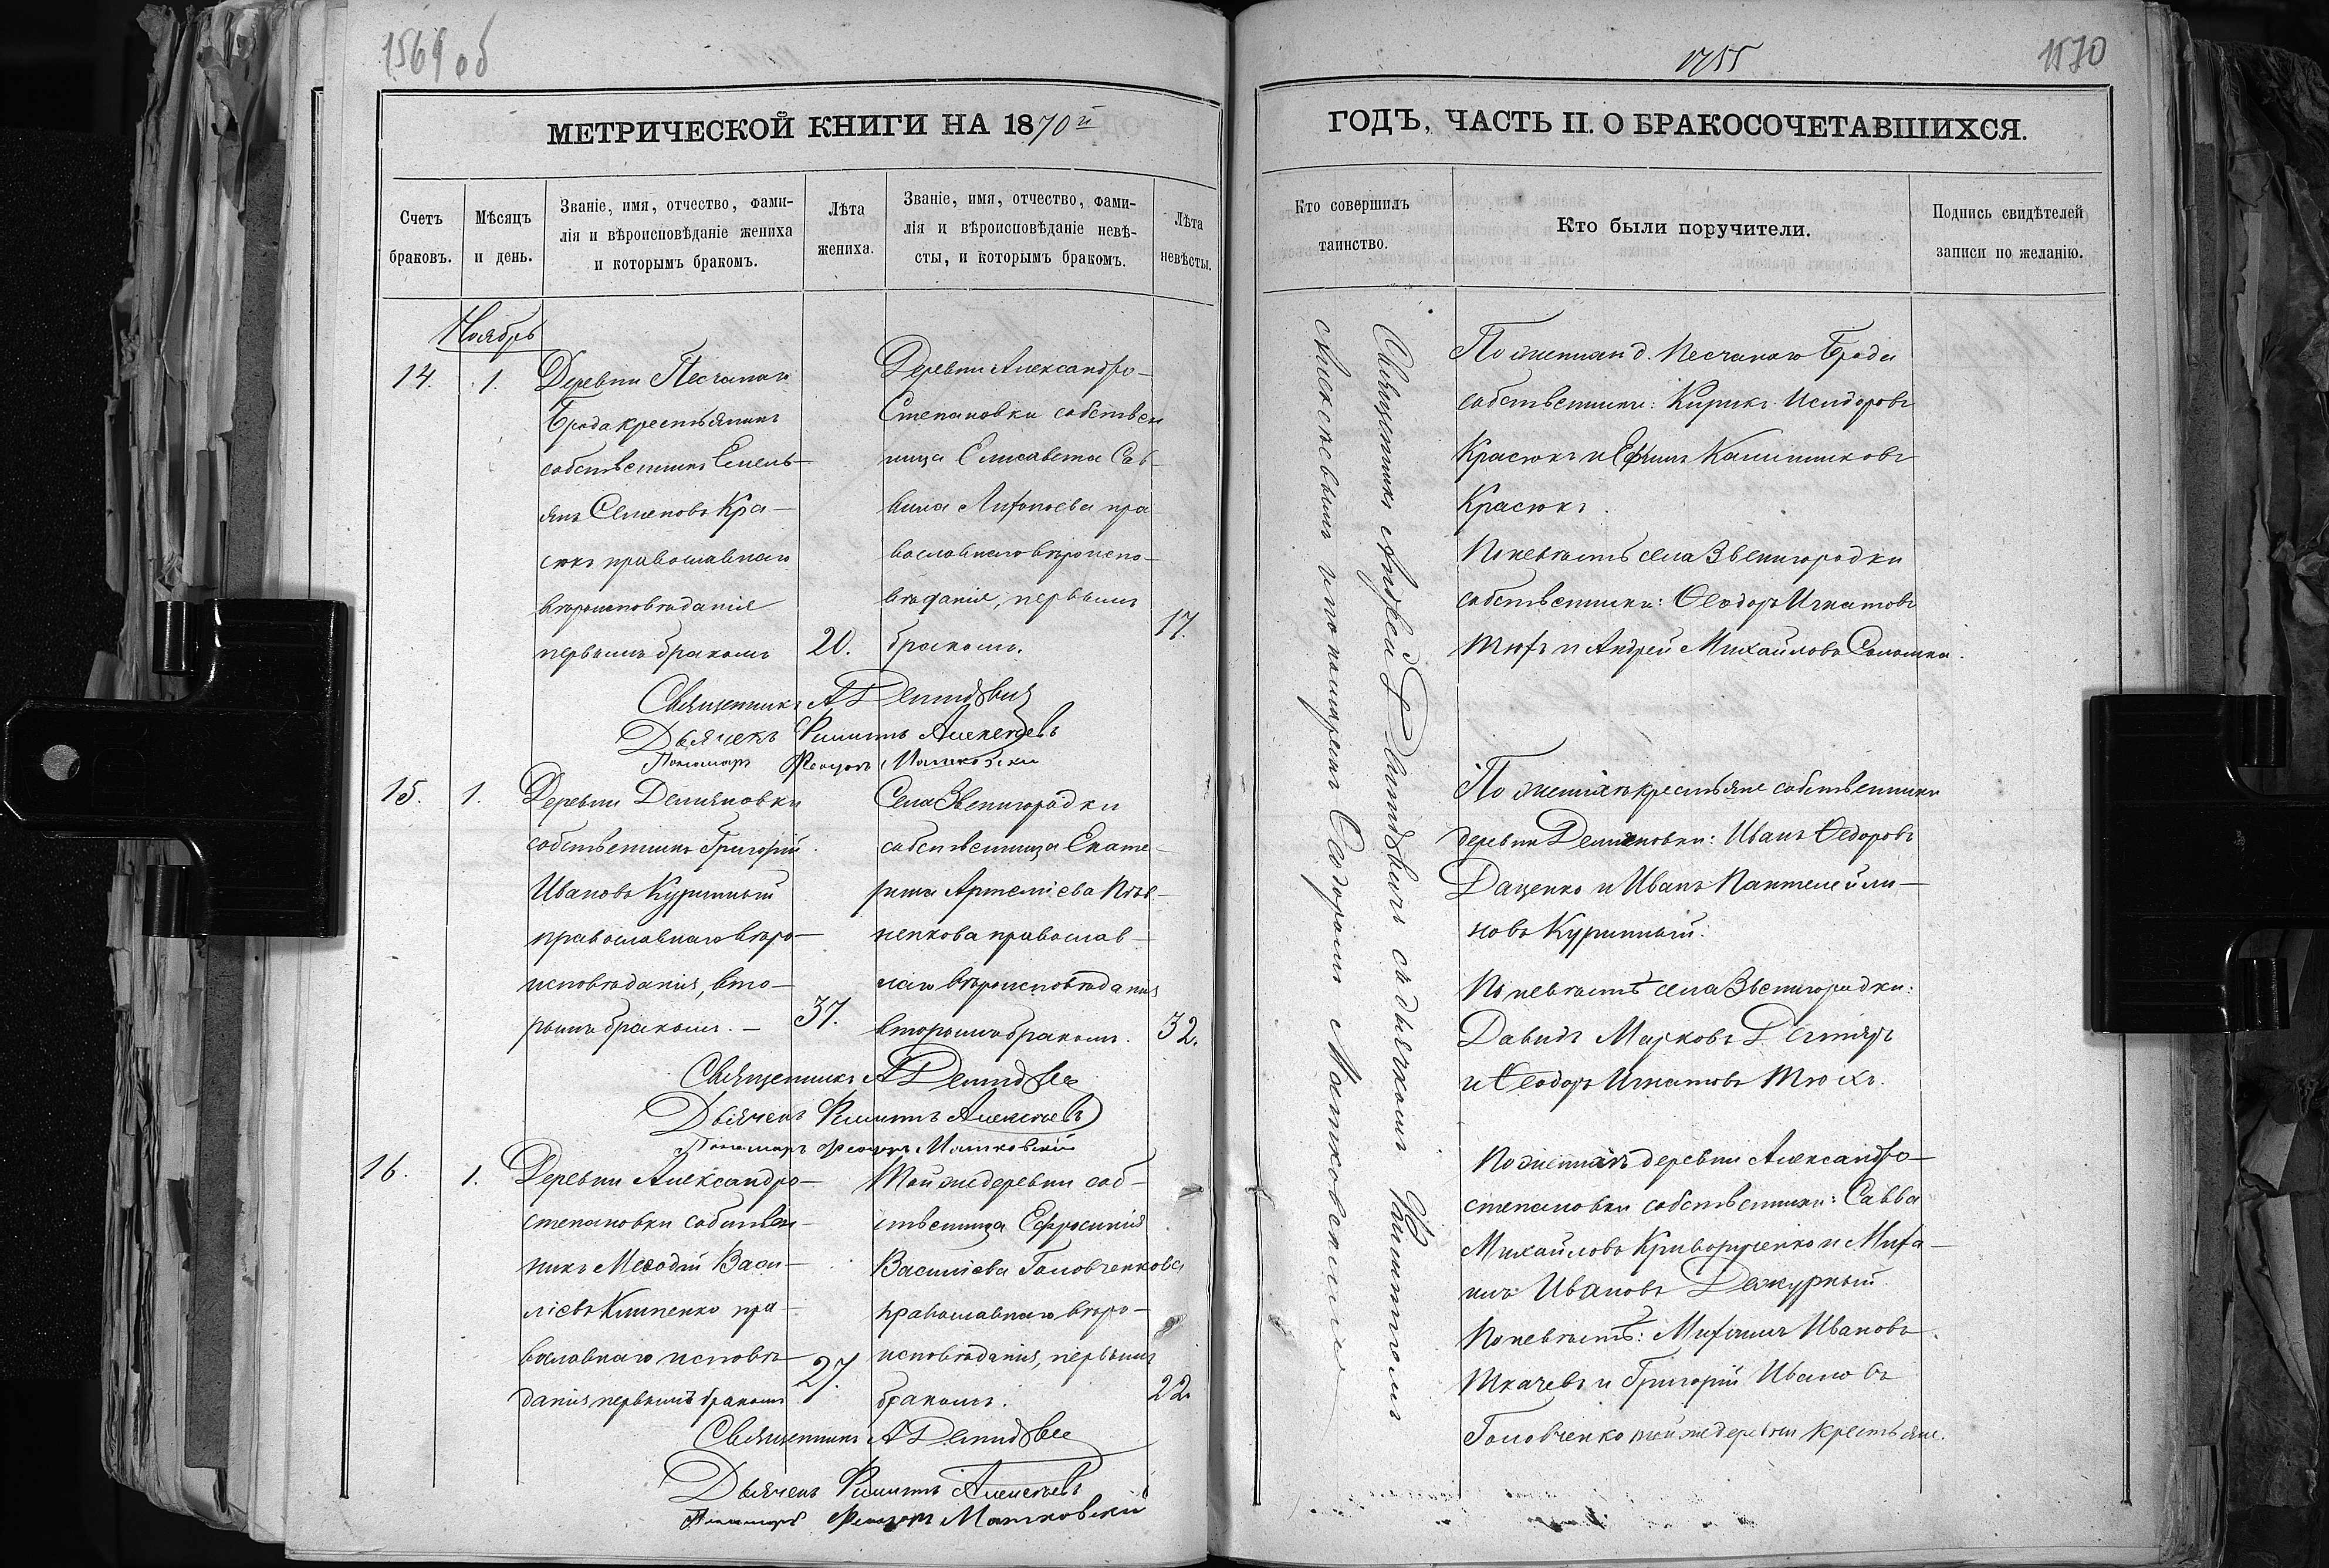 1569 об
МЕТРИЧЕСКОЙ КНИГИ НА 1870й
Счетъ
браковъ.
Мѣсяцъ
и день.
Званіе, имя, отчество, фами-
лія и вѣроисповѣданіе жениха
и которымъ бракомъ.
Лѣта
жениха.
Званіе, имя, отчество, фами-
лія и вѣроисповѣданіе невѣ-
сты, и которымъ бракомъ.
Лѣта
невѣсты.
Ноябрь
14.
1.
Деревни Песчанаго
Брода крестьянинъ
собственникъ Емель-
янъ Семеновъ Кра-
сюкъ православнаго
вѣроисповѣданія
первымъ бракомъ
20.
Деревни Александро-
Степановки собствен
ница Елисавета Сав-
вина православнаго вѣроиспо-
вѣданія, первымъ
бракомъ.
17.
Священникъ А Демидовичъ
Дьячекъ Филиппъ Алексѣевъ
Пономарь Феодоръ Матковскій
15.
1.
Деревни Демяновки
собственникъ Григорій
Ивановъ Куринный
православнаго вѣро-
исповѣданія, вто-
рымъ бракомъ. -
37.
Села Звенигородки
собственница Екате-
рина Артеміева
православ-
наго вѣроисповѣданія
вторымъ бракомъ.
32.
Священникъ А Демидовичъ
Дьячекъ Филиппъ Алексѣевъ
Пономарь Феодоръ Матковскій
16.
1.
Деревни Александро-
степановки собствен-
никъ Меѳодій Васи-
ліевъ Клименко пра-
вославнаго исповѣ-
данія первымъ бракомъ
27.
Той же деревни соб-
ственница Ефросинія
Василіева Головченкова
православнаго вѣро-
исповѣданія, первымъ
бракомъ.
22.
Священникъ А Демидовичъ
Дьячекъ Филиппъ Алексѣевъ
Пономарь Феодоръ Матковскій
1755
1570
ГОДЪ, ЧАСТЬ II. О БРАКОСОЧЕТАВШИХСЯ.
Кто совершилъ
таинство.
Кто были поручители.
Подпись свидѣтелей
записи по желанію.
Священникъ Андрей Демидовичъ съ дьячкомъ Филиппомъ
Алексѣевымъ и пономаремъ Ѳеодоромъ Матковскимъ
По женихѣ д. Песчанаго Брода
собственники: Кирикъ Исидоровъ
Красюкъ и Ефимъ Каллиниковъ
Красюкъ.
По невѣстѣ села Звенигородки
собственники: Ѳеодоръ Игнатовъ
Тюхъ и Андрей Михайловъ Саломка.
По женихѣ крестьяне собственники
деревни Демяновки: Иванъ Ѳедоровъ
Даценко и Иванъ Пантелейми-
новъ Куринный.
По невѣстѣ села Звенигородки:
Давидъ Марковъ Дегтярь
и Ѳеодоръ Игнатовъ Тюхъ.
По женихѣ деревни Александро-
степановки собственники: Савва
Михайловъ Криворученко и Миха-
илъ Ивановъ Дежурный.
По невѣстѣ: Михаилъ Ивановъ
Ткачевъ и Григорій Ивановъ
Головченко той же деревни крестьяне.